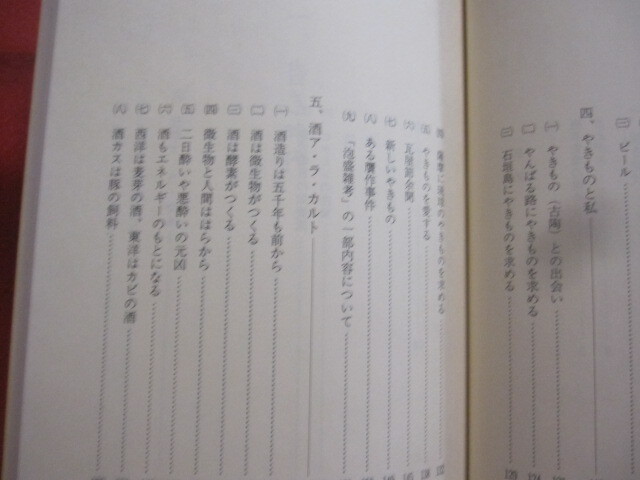 ㈡ ビール
四、やきものと私
㈠ やきもの（古陶）との出会い
㈡ やんばる路にやきものを求める
㈢ 石垣島にやきものを求める
129
124
120
㈣ 薩摩に琉球のやきものを求める
㈤ やきものを愛する
㈥
㈦ 新しいやきもの
㈧ ある贋作事件
㈨ 「泡盛雑考」の一部内容について
五、酒ア・ラ・カルト
㈠ 酒造りは五千年も前から
㈡ 酒は微生物がつくる
㈢ 酒は酵素がつくる
㈣ 微生物と人間ははらから
㈤ 二日酔いや悪酔いの元凶
㈥ 酒もエネルギーのもとになる
㈦ 西洋は麦芽の酒、東洋はカビの酒
㈧ 酒カスは豚の飼料